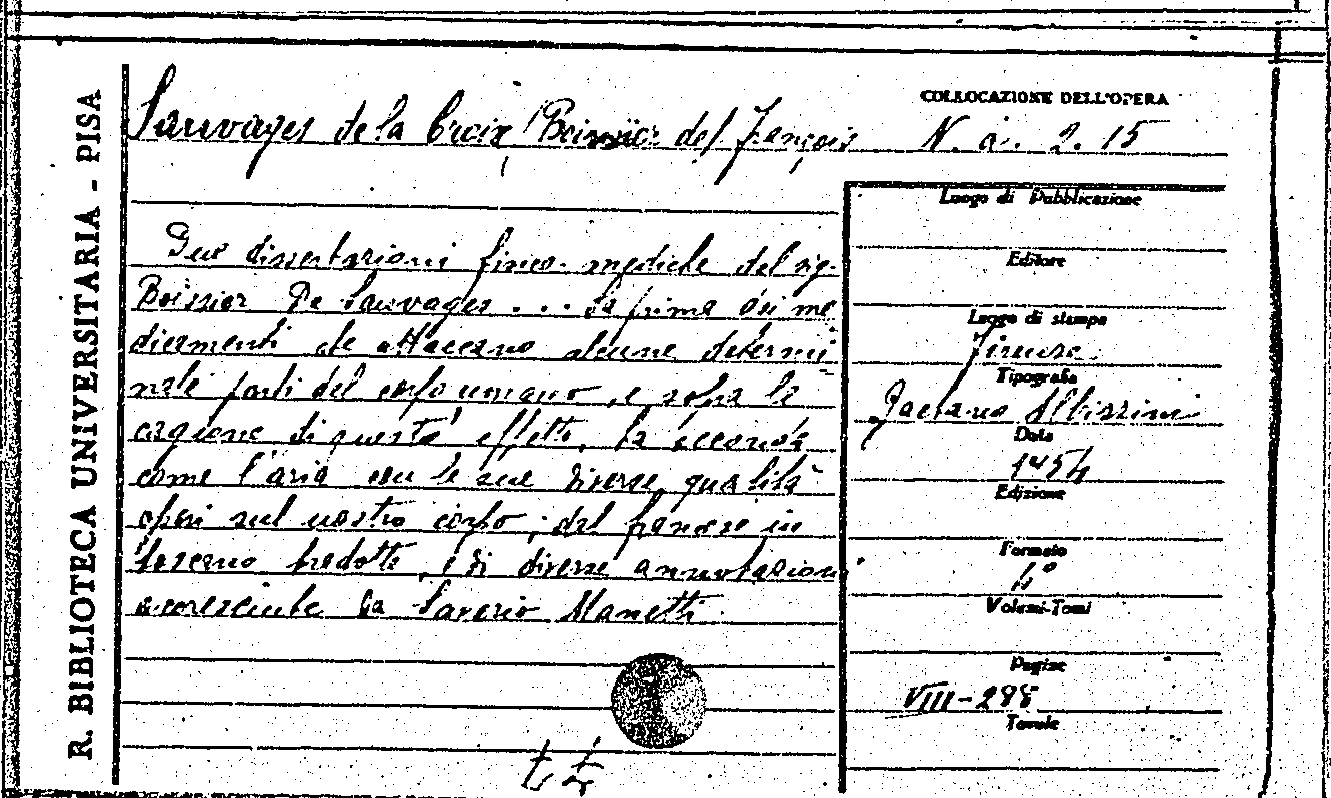 R. BIBLIOTECA UNIVERSITARIA - PISA
Sauvages de la Croix (Boissier de) François
COLLOCAZIONE DELL'OPERA
N. a. 2. 15
Due dissertazioni fisico-mediche del sig.
Boissier De Sauvages ... La prima dei me
dicamenti che attaccano alcune determi
nate parti del corpo umano, e sopra la
cagione di questi effetti, la seconda
come l'aria con le sue diverse qualità
operi sul nostro corpo; dal francese in
toscano tradotte, e di diverse annotazioni
accresciute da Saverio Manetti.
Luogo di Pubblicazione
Editore
Luogo di stampa
Firenze
Tipografia
Gaetano Albizzini
Data
1754
Edizione
Formato
4°
Volumi-Tomi
Pagine
VIII-288
Tavole